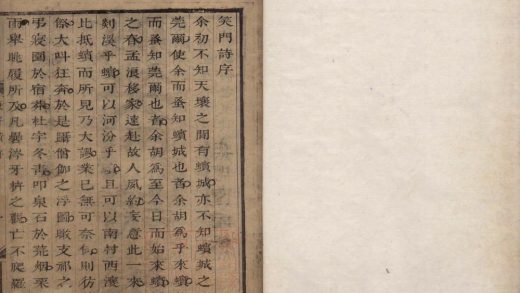 笑門詩序
余初不知天壤之間有蠙城亦不知蠙城之
莞爾使余而蚤知蠙城也者余胡爲乎來蠙
而蚤知莞爾也者余胡爲至今日而始來蠙
之春孟浪移家遠赴故人夙約妄意此一來
剡溪乎蠙可以河汾乎且可以南村西瀼
比抵蠙而所見乃大謬業已無可奈何則彷
傺大呌狂奔於是躡僧伽之浮圖支祁之
弔寢園於宿莽杜宇冬青叩泉石於荒烟
雨舉眺履所及凡牙之亡不爬羅